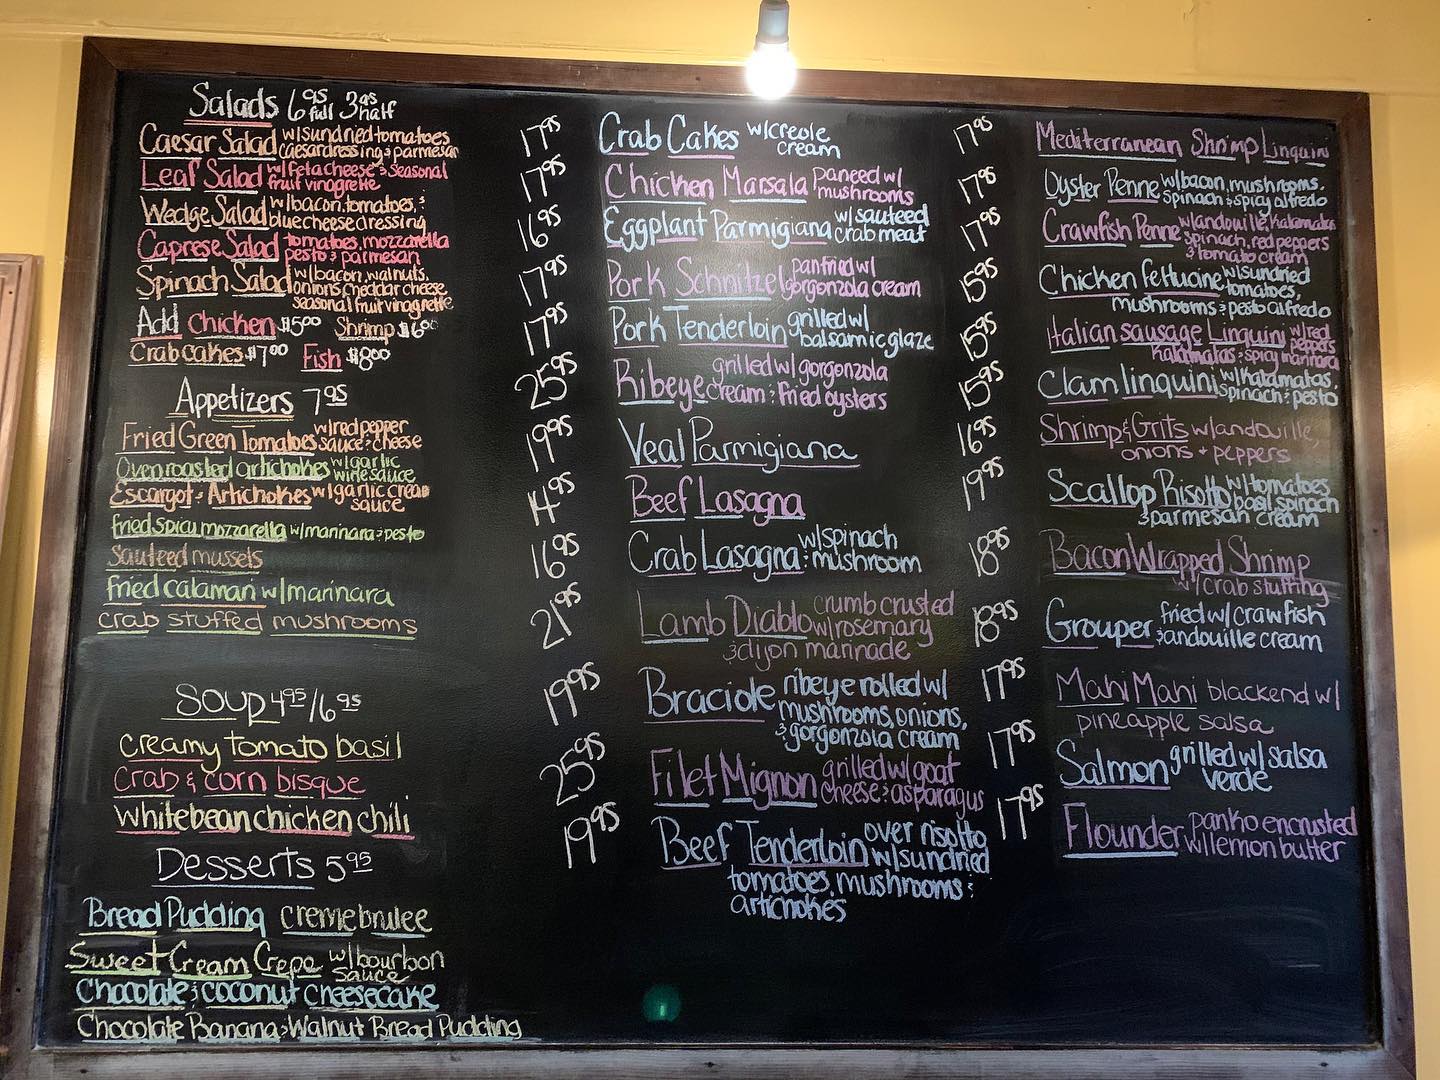 Salads 6.95 full 3.95 half
Caesar Salad w/sundried tomatoes
caesar dressing & parmesan
Leaf Salad w/feta cheese & seasonal
fruit vinagrette
Wedge Salad w/bacon, tomatoes, &
blue cheese dressing
Caprese Salad tomatoes, mozzarella
pesto & parmesan
Spinach Salad w/bacon, walnuts,
onions, cheddar cheese,
seasonal fruit vinagrette
Add Chicken $5.00 Shrimp $6.00
Crabcakes $7.00 Fish $8.00
Appetizers 7.95
Fried Green Tomatoes w/red pepper
sauce & cheese
Oven roasted artichokes w/garlic
wine sauce
Escargot & Artichokes w/garlic cream
sauce
fried spicy mozzarella w/marinara & pesto
sauteed mussels
fried calamari w/marinara
crab stuffed mushrooms
Soup 4.95/6.95
creamy tomato basil
Crab & corn bisque
white bean chicken chili
Desserts 5.95
Bread Pudding cremebrulee
Sweet Cream Crepe w/bourbon
sauce
Chocolate & coconut cheesecake
Chocolate Banana & Walnut Bread Pudding
17.95 Crab Cakes w/creole
cream
17.95 Chicken Marsala paneed w/
mushrooms
16.95 Eggplant Parmigiana w/ sauteed
crab meat
17.95 Pork Schnitzel panfried w/
gorgonzola cream
17.95 Pork Tenderloin grilled w/
balsamic glaze
25.95 Ribeye grilled w/ gorgonzola
cream & fried oysters
19.95 Veal Parmigiana
14.95 Beef Lasagna
16.95 Crab Lasagna w/spinach
& mushroom
21.95 Lamb Diablo crumb crusted
w/rosemary
& dijon marinade
19.95 Braciole ribeye rolled w/
mushrooms, onions,
& gorgonzola cream
25.95 Filet Mignon grilled w/ goat
cheese & asparagus
19.95 Beef Tenderloin over risotto
w/sundried
tomatoes, mushrooms &
artichokes
17.95 Mediterranean Shrimp Linguini
17.95 Oyster Penne w/bacon, mushrooms,
spinach & spicy alfredo
17.95 Crawfish Penne w/andouille, kalamatas
spinach, red peppers
& tomato cream
15.95 Chicken fettucine w/sundried
tomatoes,
mushrooms & pesto alfredo
15.95 Italian sausage Linguini w/red
peppers
kalamatas & spicy marinara
15.95 Clam linguini w/kalamatas,
spinach & pesto
16.95 Shrimp & Grits w/andouille,
onions + peppers
19.95 Scallop Risotto w/tomatoes
basil, spinach
& parmesan cream
18.95 Bacon Wrapped Shrimp
w/crab stuffing
18.95 Grouper fried w/ crawfish
& andouille cream
17.95 Mahi Mahi blackend w/
pineapple salsa
17.95 Salmon grilled w/ salsa
verde
17.95 Flounder panko encrusted
w/lemon butter